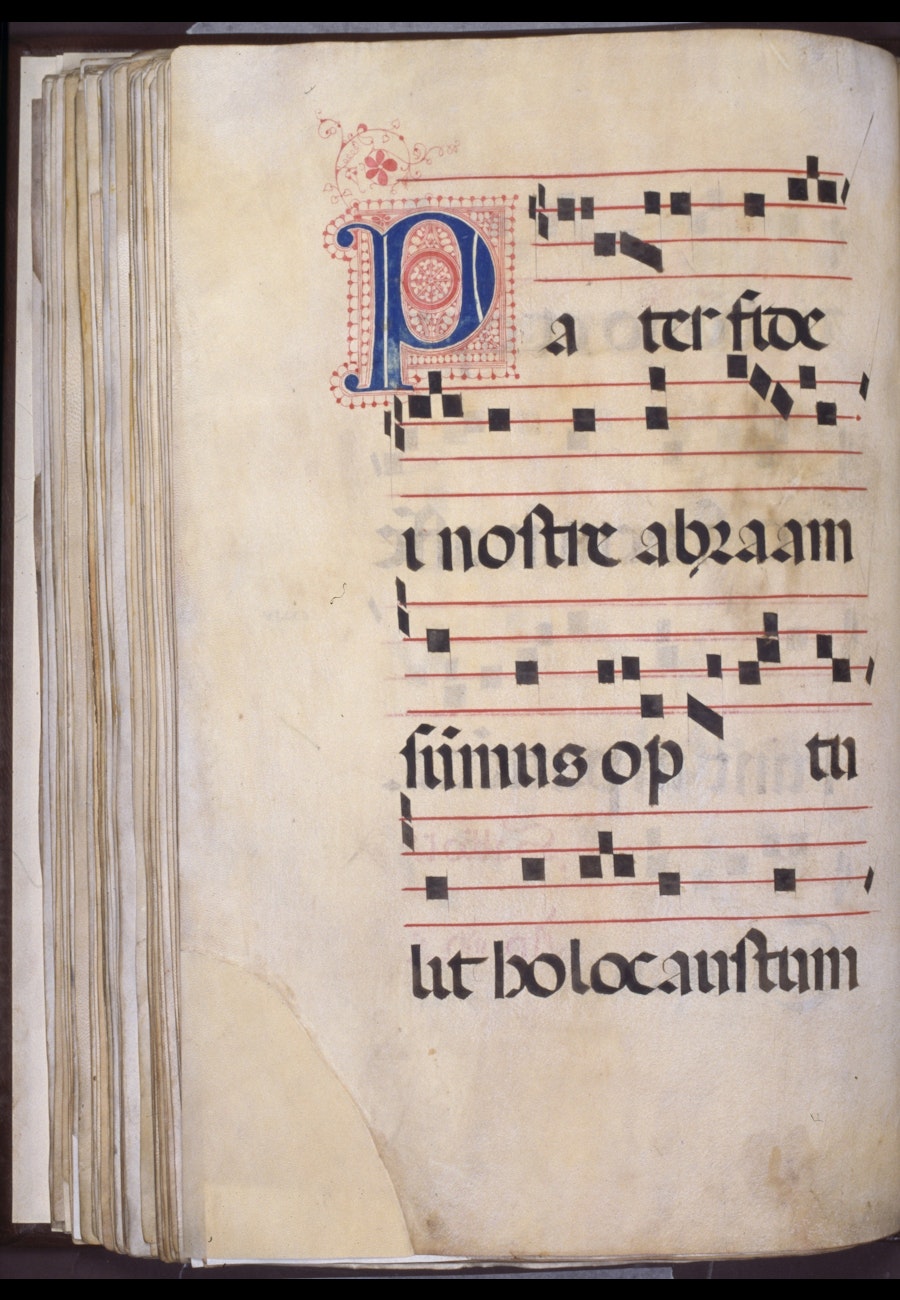 Pa ter fide
i noſtre abraam
ſumus op tu
lit holocauſtum